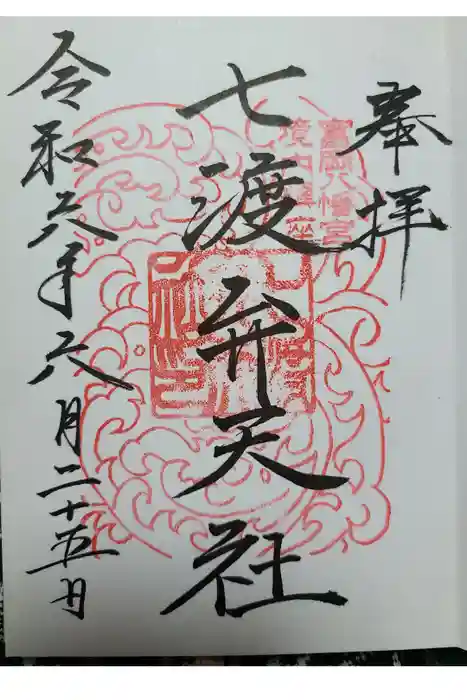 奉拝
富岡八幡宮
境内鎮座
七渡弁天社
令和六年六月二十五日